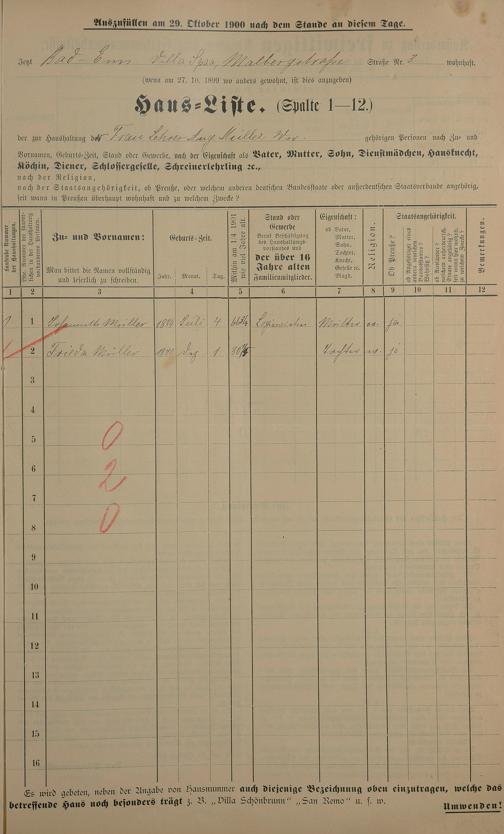 Auszufüllen am 29. Oktober 1900 nach dem Stande an diesem Tage.
Jetzt Bad-Ems Villa Spaa, Walbergstraße Straße Nr. 3 wohnhaft.
(wenn am 27. 10. 1899 wo anders gewohnt, ist dies anzugeben)
Haus-Liste. (Spalte 1—12.)
der zur Haushaltung des Frau Lehrer Aug. Müller Ww. gehörigen Personen nach Zu- und
Vornamen, Geburts-Zeit, Stand oder Gewerbe, nach der Eigenschaft als Vater, Mutter, Sohn, Dienstmädchen, Hausknecht,
Köchin, Diener, Schlossergeselle, Schreinerlehrling ꝛc.,
nach der Religion,
nach der Staatsangehörigkeit, ob Preuße, oder welchem anderen deutschen Bundesstaate oder außerdeutschen Staatsverbande angehörig,
seit wann in Preußen überhaupt wohnhaft und zu welchem Zwecke?
Zu- und Vornamen:
Man bittet die Namen vollständig
und leserlich zu schreiben.
Geburts-Zeit.
Jahr. Monat. Tag.
Mithin am 1/4 1901
wie viel Jahre alt.
Stand oder
Gewerbe
der über 16
Jahre alten
Familienmitglieder.
Eigenschaft:
ob Vater,
Mutter,
Sohn,
Tochter,
Knecht,
Geselle ꝛc.
Magd.
Religion.
Staatsangehörigkeit.
Ob Preuße?
Bemerkungen.
1 2 3 4 5 6 7 8 9 10 11 12
1 Müller Juli 4 Mutter ev. ja
2 Frieda Müller Dez 1 Tochter ev. ja
3
4
5
0
6
2
7
0
8
9
10
11
12
13
14
15
16
Es wird gebeten, neben der Angabe von Hausnummer auch diejenige Bezeichnung oben einzutragen, welche das
betreffende Haus noch besonders trägt z. B. „Villa Schönbrunn" „San Remo" u. s. w.
Umwenden!